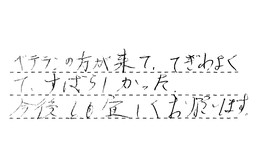 ベテランの方が来て、てぎわよく
て、すばらしかった。
今後とも宜しくお願いします。